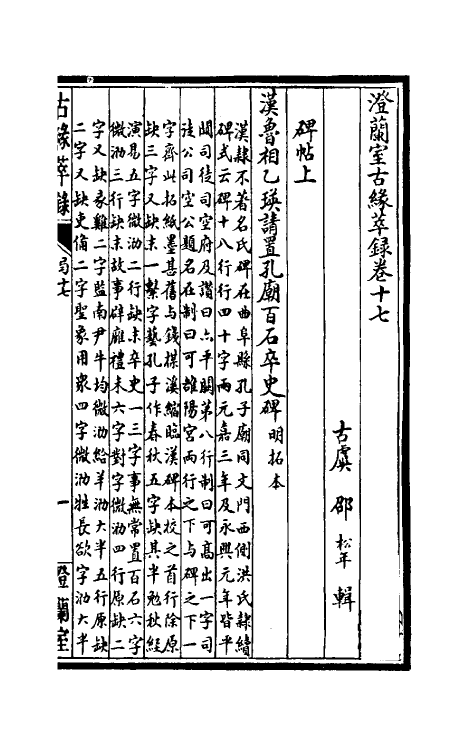 澄蘭室古緣萃録卷十七
古虞 邵松年 輯
碑帖上
漢魯相乙瑛請置孔廟百石卒史碑 明拓本
漢隸不著名氏碑在曲阜縣孔子廟同文門西側洪氏隸續
碑式云碑十八行行四十字兩元嘉三年及永興元年皆平
闕司徒司空府及讚曰六平闕第八行制曰可高出一字司
徒公司空公題名在制曰可雒陽宮兩行之下與碑之下一
字齊此拓紙墨甚舊與錢楳溪縮臨漢碑本校之首行除原
缺三字又缺末一繫字藝孔子作春秋五字缺其半勉秋經
演易五字微泐二行缺末卒史一三字事無常置百石六字
微泐三行缺末故事辟廱禮未六字對字微泐四行原缺二
字又缺豕雞二字監南尹牛均微泐給羊泐大半五行原缺
二字又缺吏備二字聖象用衆四字微泐牲長欲字泐大半
古緣萃錄
卷十七
一
澄蘭室